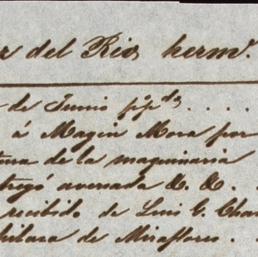 r del Rio, herm.
de Junio ppdo. . . . .
á Magin Mora por
de la maquinaria
averiada &. &. .
recibido de Luis G. Cha
de Miraflores. .